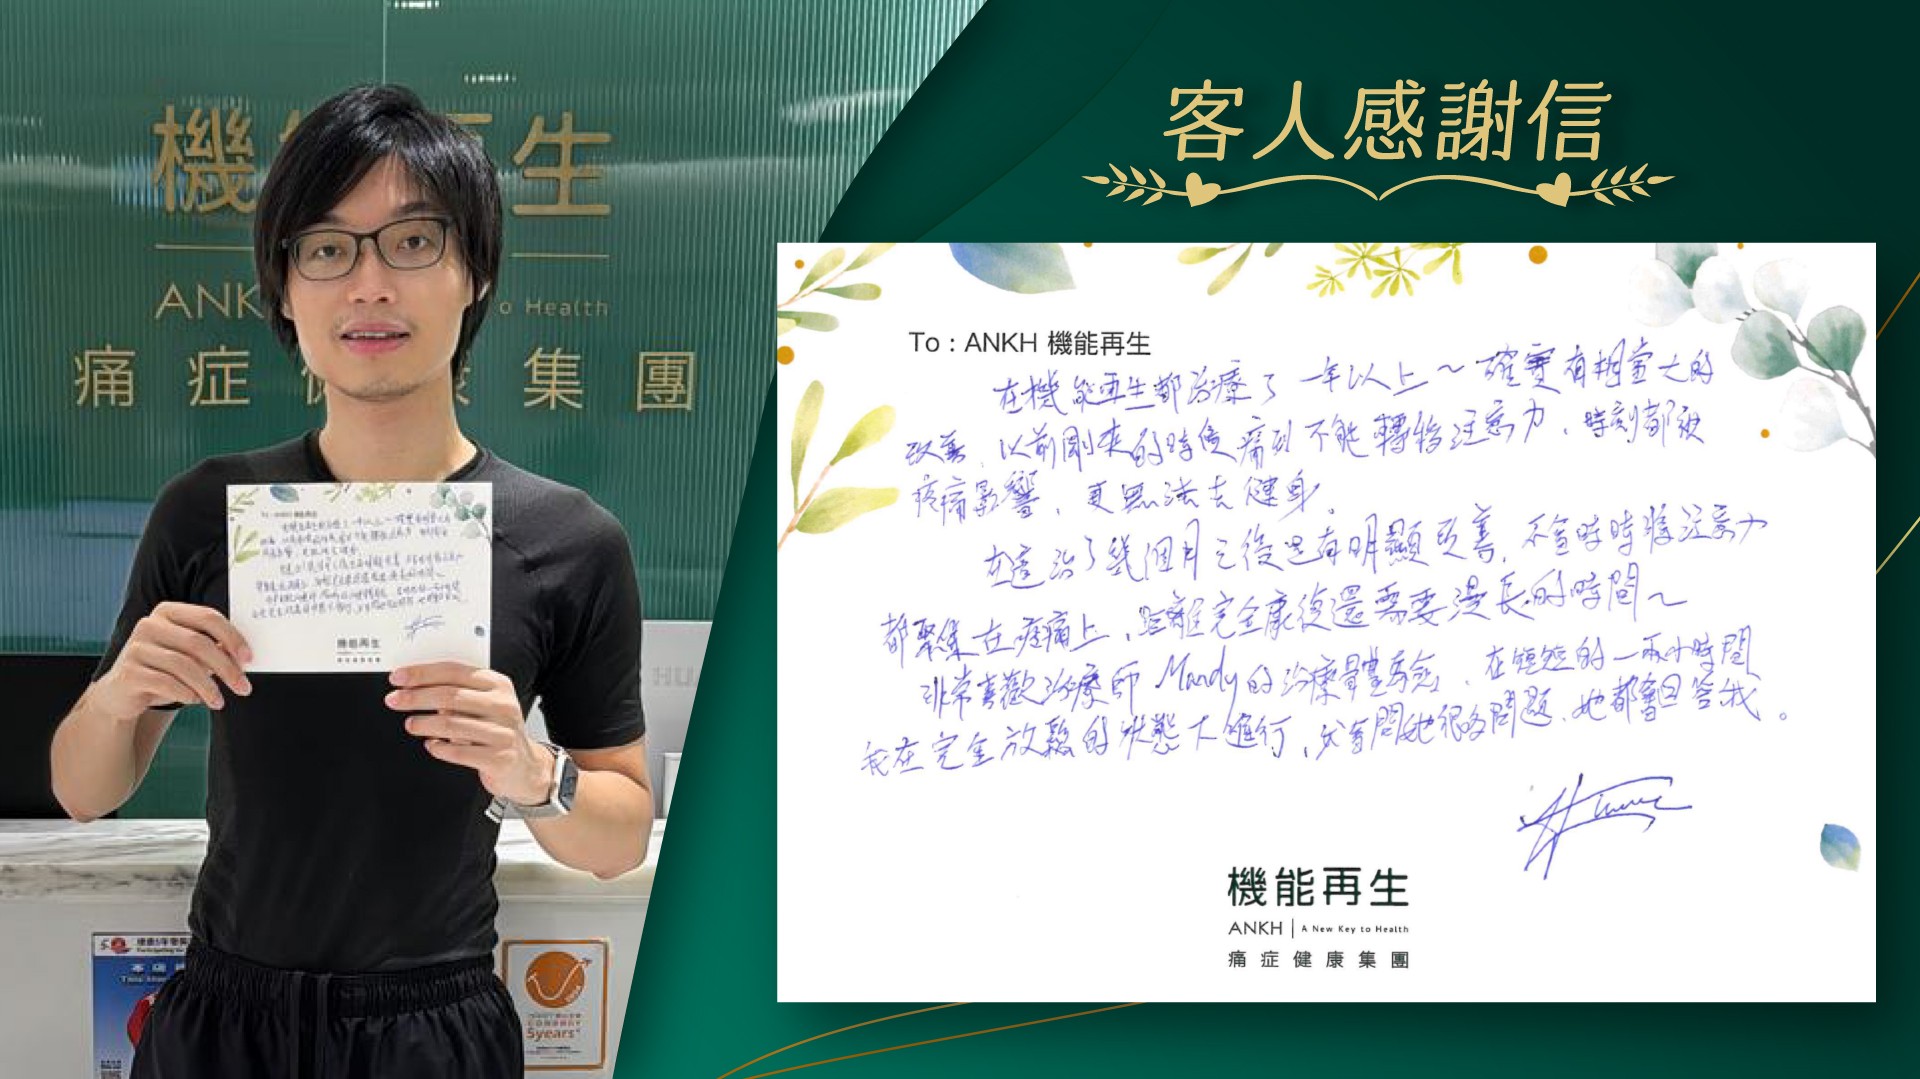 機 生
ANK o Health
痛 症 集 團
客人感謝信
To : ANKH 機能再生
在機能再生都治療了一年以上～確實有相當大的
改善，以前剛來的時候痛到不能轉移注意力，時刻都被
疼痛影響，更無法去健身。
在這治了幾個月之後已有明顯改善，不會時時將注意力
都聚集在痠痛上，距離完全康復還需要漫長的時間～
非常喜歡治療師 Mandy 的治療體驗，在短短的一兩小時間
我在完全放鬆的狀態大進行，我有問她很多問題，她都會回答我。
機能再生
ANKH | A New Key to Health
痛症健康集團
5years+